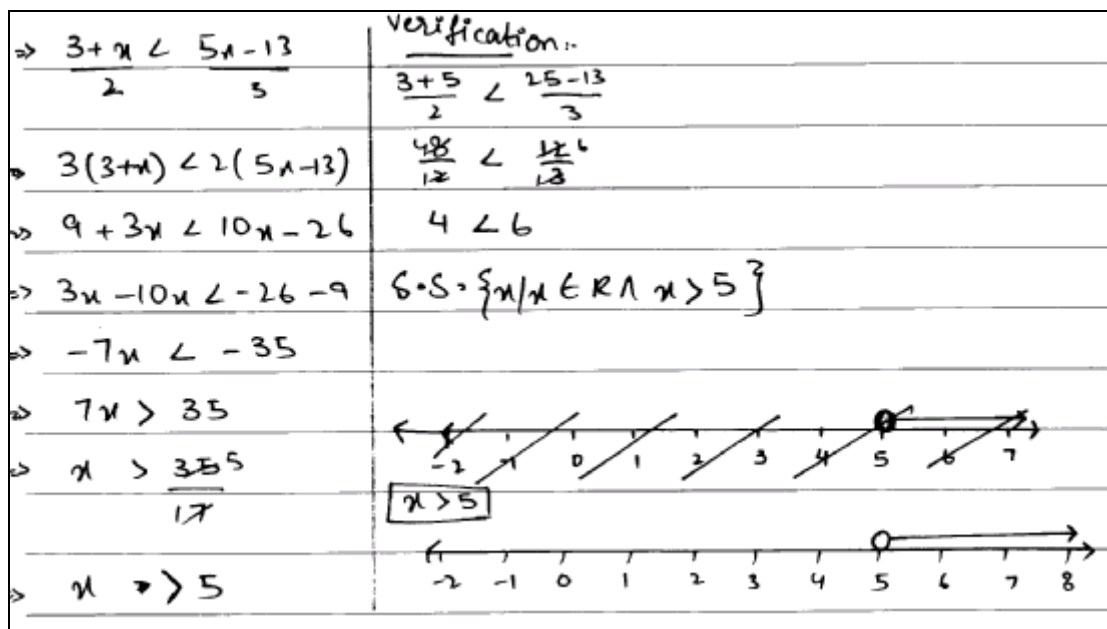 ⇒ (3+x)/2 < (5x-13)/3
⇒ 3(3+x) < 2(5x-13)
⇒ 9 + 3x < 10x - 26
⇒ 3x - 10x < -26 - 9
⇒ -7x < -35
⇒ 7x > 35
⇒ x > 35/7 5/1
⇒ x > 5
Verification:-
(3+5)/2 < (25-13)/3
8/2 4/1 < 12/3 6/1
4 < 6
S.S = {x/x ∈ R ∧ x > 5}
-2 -1 0 1 2 3 4 5 6 7
x > 5
-2 -1 0 1 2 3 4 5 6 7 8